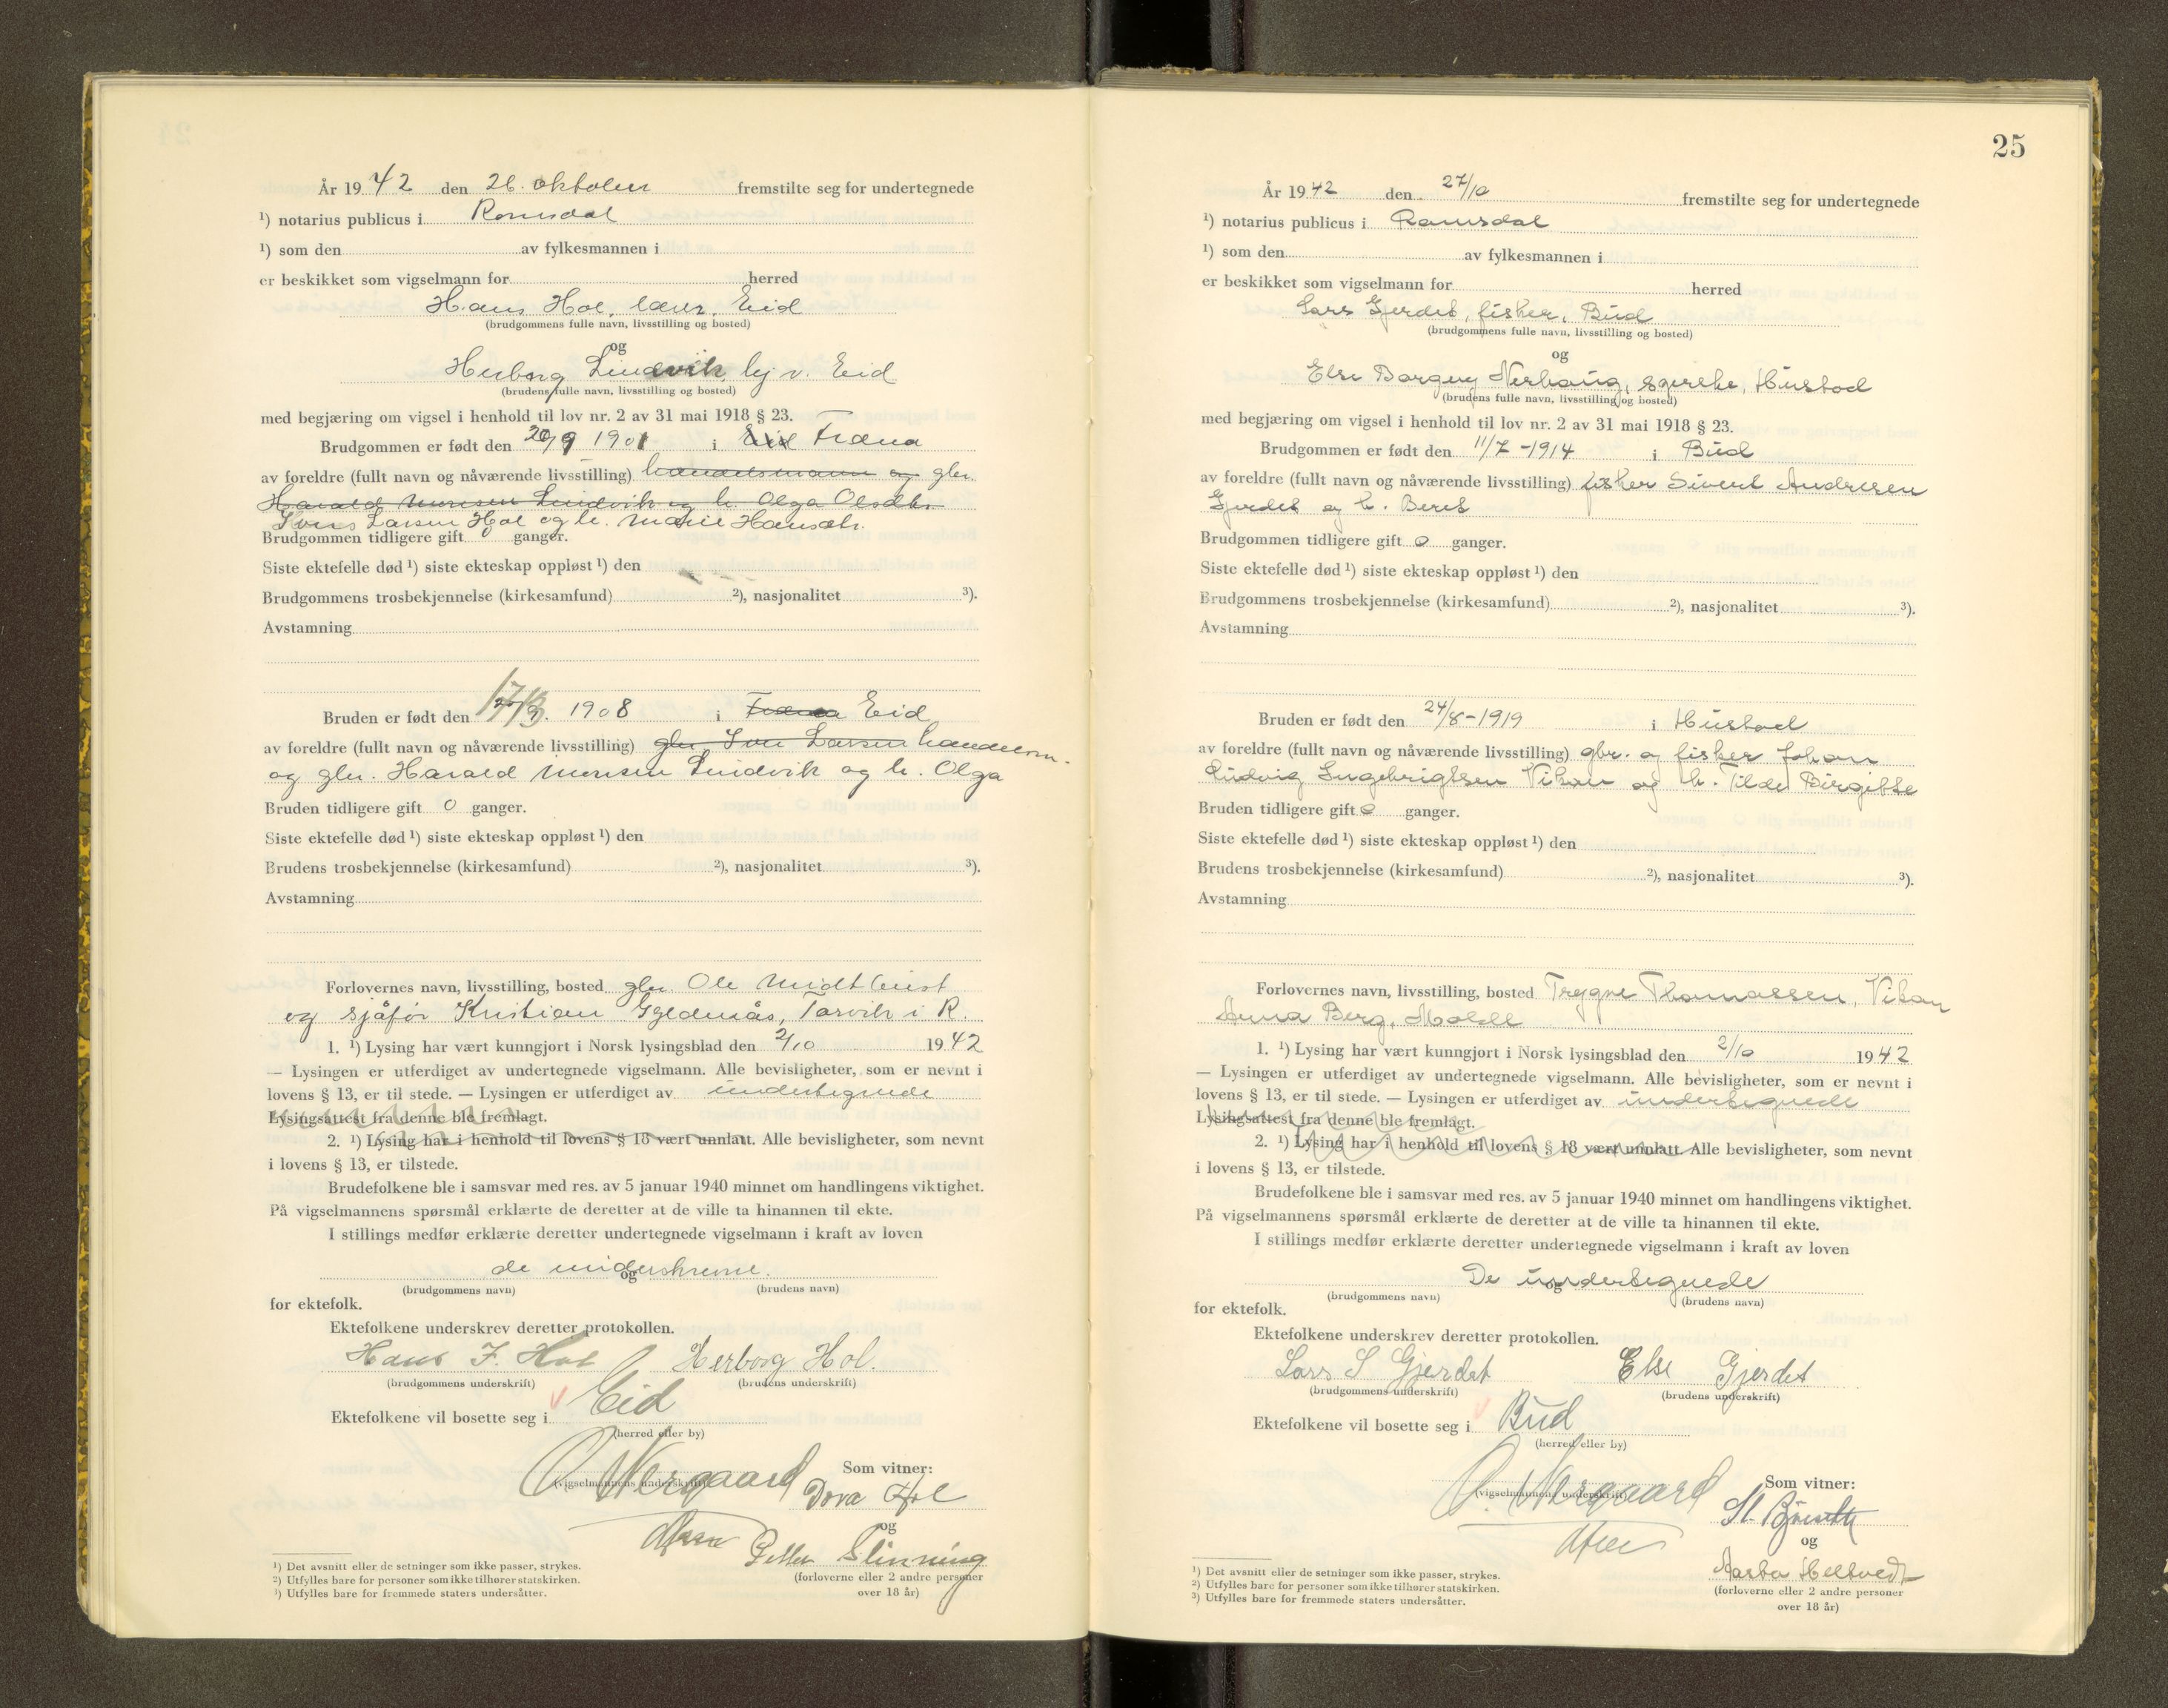 År 1942 den 26. oktober fremstilte seg for undertegnede
¹) notarius publicus i Romsdal
¹) som den av fylkesmannen i
er beskikket som vigselmann for herred
Hans Hol, lærer, Eid
(brudgommens fulle navn, livsstilling og bosted)
og
Herborg Lindvik, hj v. Eid
(brudens fulle navn, livsstilling og bosted)
med begjæring om vigsel i henhold til lov nr. 2 av 31 mai 1918 § 23.
Brudgommen er født den 20/9 1901 i Eid Fræna
av foreldre (fullt navn og nåværende livsstilling) handelsmann og gbr.
Harald Monsen Lindvik og h. Olga Olsdtr
Ivers Larsen Hol og h. Marie Hansdtr.
Brudgommen tidligere gift 0 ganger.
Siste ektefelle død ¹) siste ekteskap oppløst ¹) den
Brudgommens trosbekjennelse (kirkesamfund) ²), nasjonalitet ³).
Avstamning
Bruden er født den 17/3 1908 i Fræna Eid
av foreldre (fullt navn og nåværende livsstilling) gbr Iver Larsen handelsm.
og gbr. Harald Monsen Lindvik og h. Olga
Bruden tidligere gift 0 ganger.
Siste ektefelle død ¹) siste ekteskap oppløst ¹) den
Brudens trosbekjennelse (kirkesamfund) ²), nasjonalitet ³).
Avstamning
Forlovernes navn, livsstilling, bosted gbr Ole
og sjåfør Kristian Gjeldnås, Torvik i R.
1. ¹) Lysing har vært kunngjort i Norsk lysingsblad den 2/10 1942
— Lysingen er utferdiget av undertegnede vigselmann. Alle bevisligheter, som er nevnt i
lovens § 13, er til stede. — Lysingen er utferdiget av undertegnede
Lysingsattest fra denne ble fremlagt.
2. ¹) Lysing har i henhold til lovens § 18 vært unnlatt. Alle bevisligheter, som nevnt
i lovens § 13, er tilstede.
Brudefolkene ble i samsvar med res. av 5 januar 1940 minnet om handlingens viktighet.
På vigselmannens spørsmål erklærte de deretter at de ville ta hinannen til ekte.
I stillings medfør erklærte deretter undertegnede vigselmann i kraft av loven
de underskrevne.
og
(brudgommens navn) (brudens navn)
for ektefolk.
Ektefolkene underskrev deretter protokollen.
Hans I. Hol Herborg Hol.
(brudgommens underskrift) (brudens underskrift)
Ektefolkene vil bosette seg i Eid
(herred eller by)
O. Nergaard
(vigselmannens underskrift)
Som vitner:
Dora Hol
og
Petter Slinning
(forloverne eller 2 andre personer
over 18 år)
¹) Det avsnitt eller de setninger som ikke passer, strykes.
²) Utfylles bare for personer som ikke tilhører statskirken.
³) Utfylles bare for fremmede staters undersåtter.
25
År 1942 den 27/10 fremstilte seg for undertegnede
¹) notarius publicus i Romsdal
¹) som den av fylkesmannen i
er beskikket som vigselmann for herred
Lars Gjerdet, fisker, Bud
(brudgommens fulle navn, livsstilling og bosted)
og
Else Borgny Nerhaug, Hustad
(brudens fulle navn, livsstilling og bosted)
med begjæring om vigsel i henhold til lov nr. 2 av 31 mai 1918 § 23.
Brudgommen er født den 11/7 - 1914 i Bud
av foreldre (fullt navn og nåværende livsstilling) fisker Sivert Andresen
Gjerdet og h. Beret
Brudgommen tidligere gift 0 ganger.
Siste ektefelle død ¹) siste ekteskap oppløst ¹) den
Brudgommens trosbekjennelse (kirkesamfund) ²), nasjonalitet ³).
Avstamning
Bruden er født den 24/8 - 1919 i Hustad
av foreldre (fullt navn og nåværende livsstilling) gbr. og fisker Johan
Ludvig Ingebrigtsen Vikan og h. Tilde Birgitte
Bruden tidligere gift 0 ganger.
Siste ektefelle død ¹) siste ekteskap oppløst ¹) den
Brudens trosbekjennelse (kirkesamfund) ²), nasjonalitet ³).
Avstamning
Forlovernes navn, livsstilling, bosted Trygve Thomassen, Vikan
Anna Berg, Molde
1. ¹) Lysing har vært kunngjort i Norsk lysingsblad den 2/10 1942
— Lysingen er utferdiget av undertegnede vigselmann. Alle bevisligheter, som er nevnt i
lovens § 13, er til stede. — Lysingen er utferdiget av undertegnede
Lysingsattest fra denne ble fremlagt.
2. ¹) Lysing har i henhold til lovens § 18 vært unnlatt. Alle bevisligheter, som nevnt
i lovens § 13, er tilstede.
Brudefolkene ble i samsvar med res. av 5 januar 1940 minnet om handlingens viktighet.
På vigselmannens spørsmål erklærte de deretter at de ville ta hinannen til ekte.
I stillings medfør erklærte deretter undertegnede vigselmann i kraft av loven
De undertegnede
og
(brudgommens navn) (brudens navn)
for ektefolk.
Ektefolkene underskrev deretter protokollen.
Lars S Gjerdet Else Gjerdet
(brudgommens underskrift) (brudens underskrift)
Ektefolkene vil bosette seg i Bud
(herred eller by)
O. Nergaard
(vigselmannens underskrift)
Som vitner:
og
Aasta Heltvedt
(forloverne eller 2 andre personer
over 18 år)
¹) Det avsnitt eller de setninger som ikke passer, strykes.
²) Utfylles bare for personer som ikke tilhører statskirken.
³) Utfylles bare for fremmede staters undersåtter.